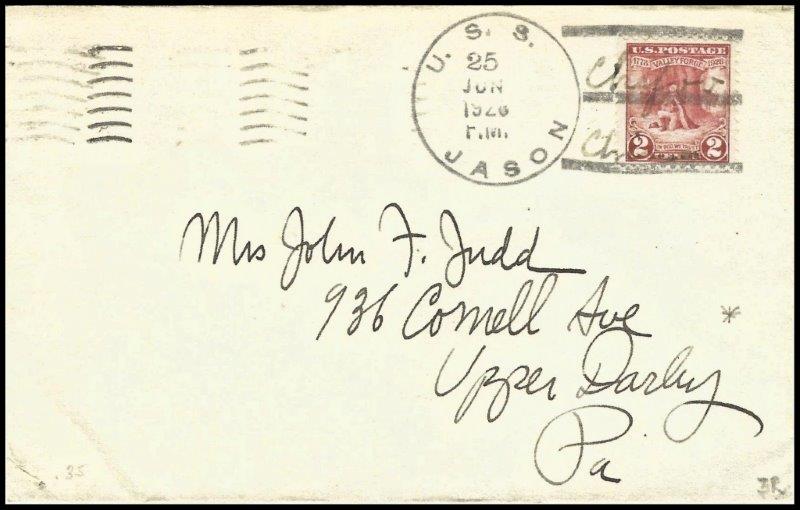 U. S. S.
25
JUN
1928
P.M.
JASON
U.S. POSTAGE
1778 VALLEY FORGE 1928
2 IN GOD WE TRUST 2
Chefoo
Mrs John F. Judd
936 Cornell Ave
Upper Darby
Pa
.35